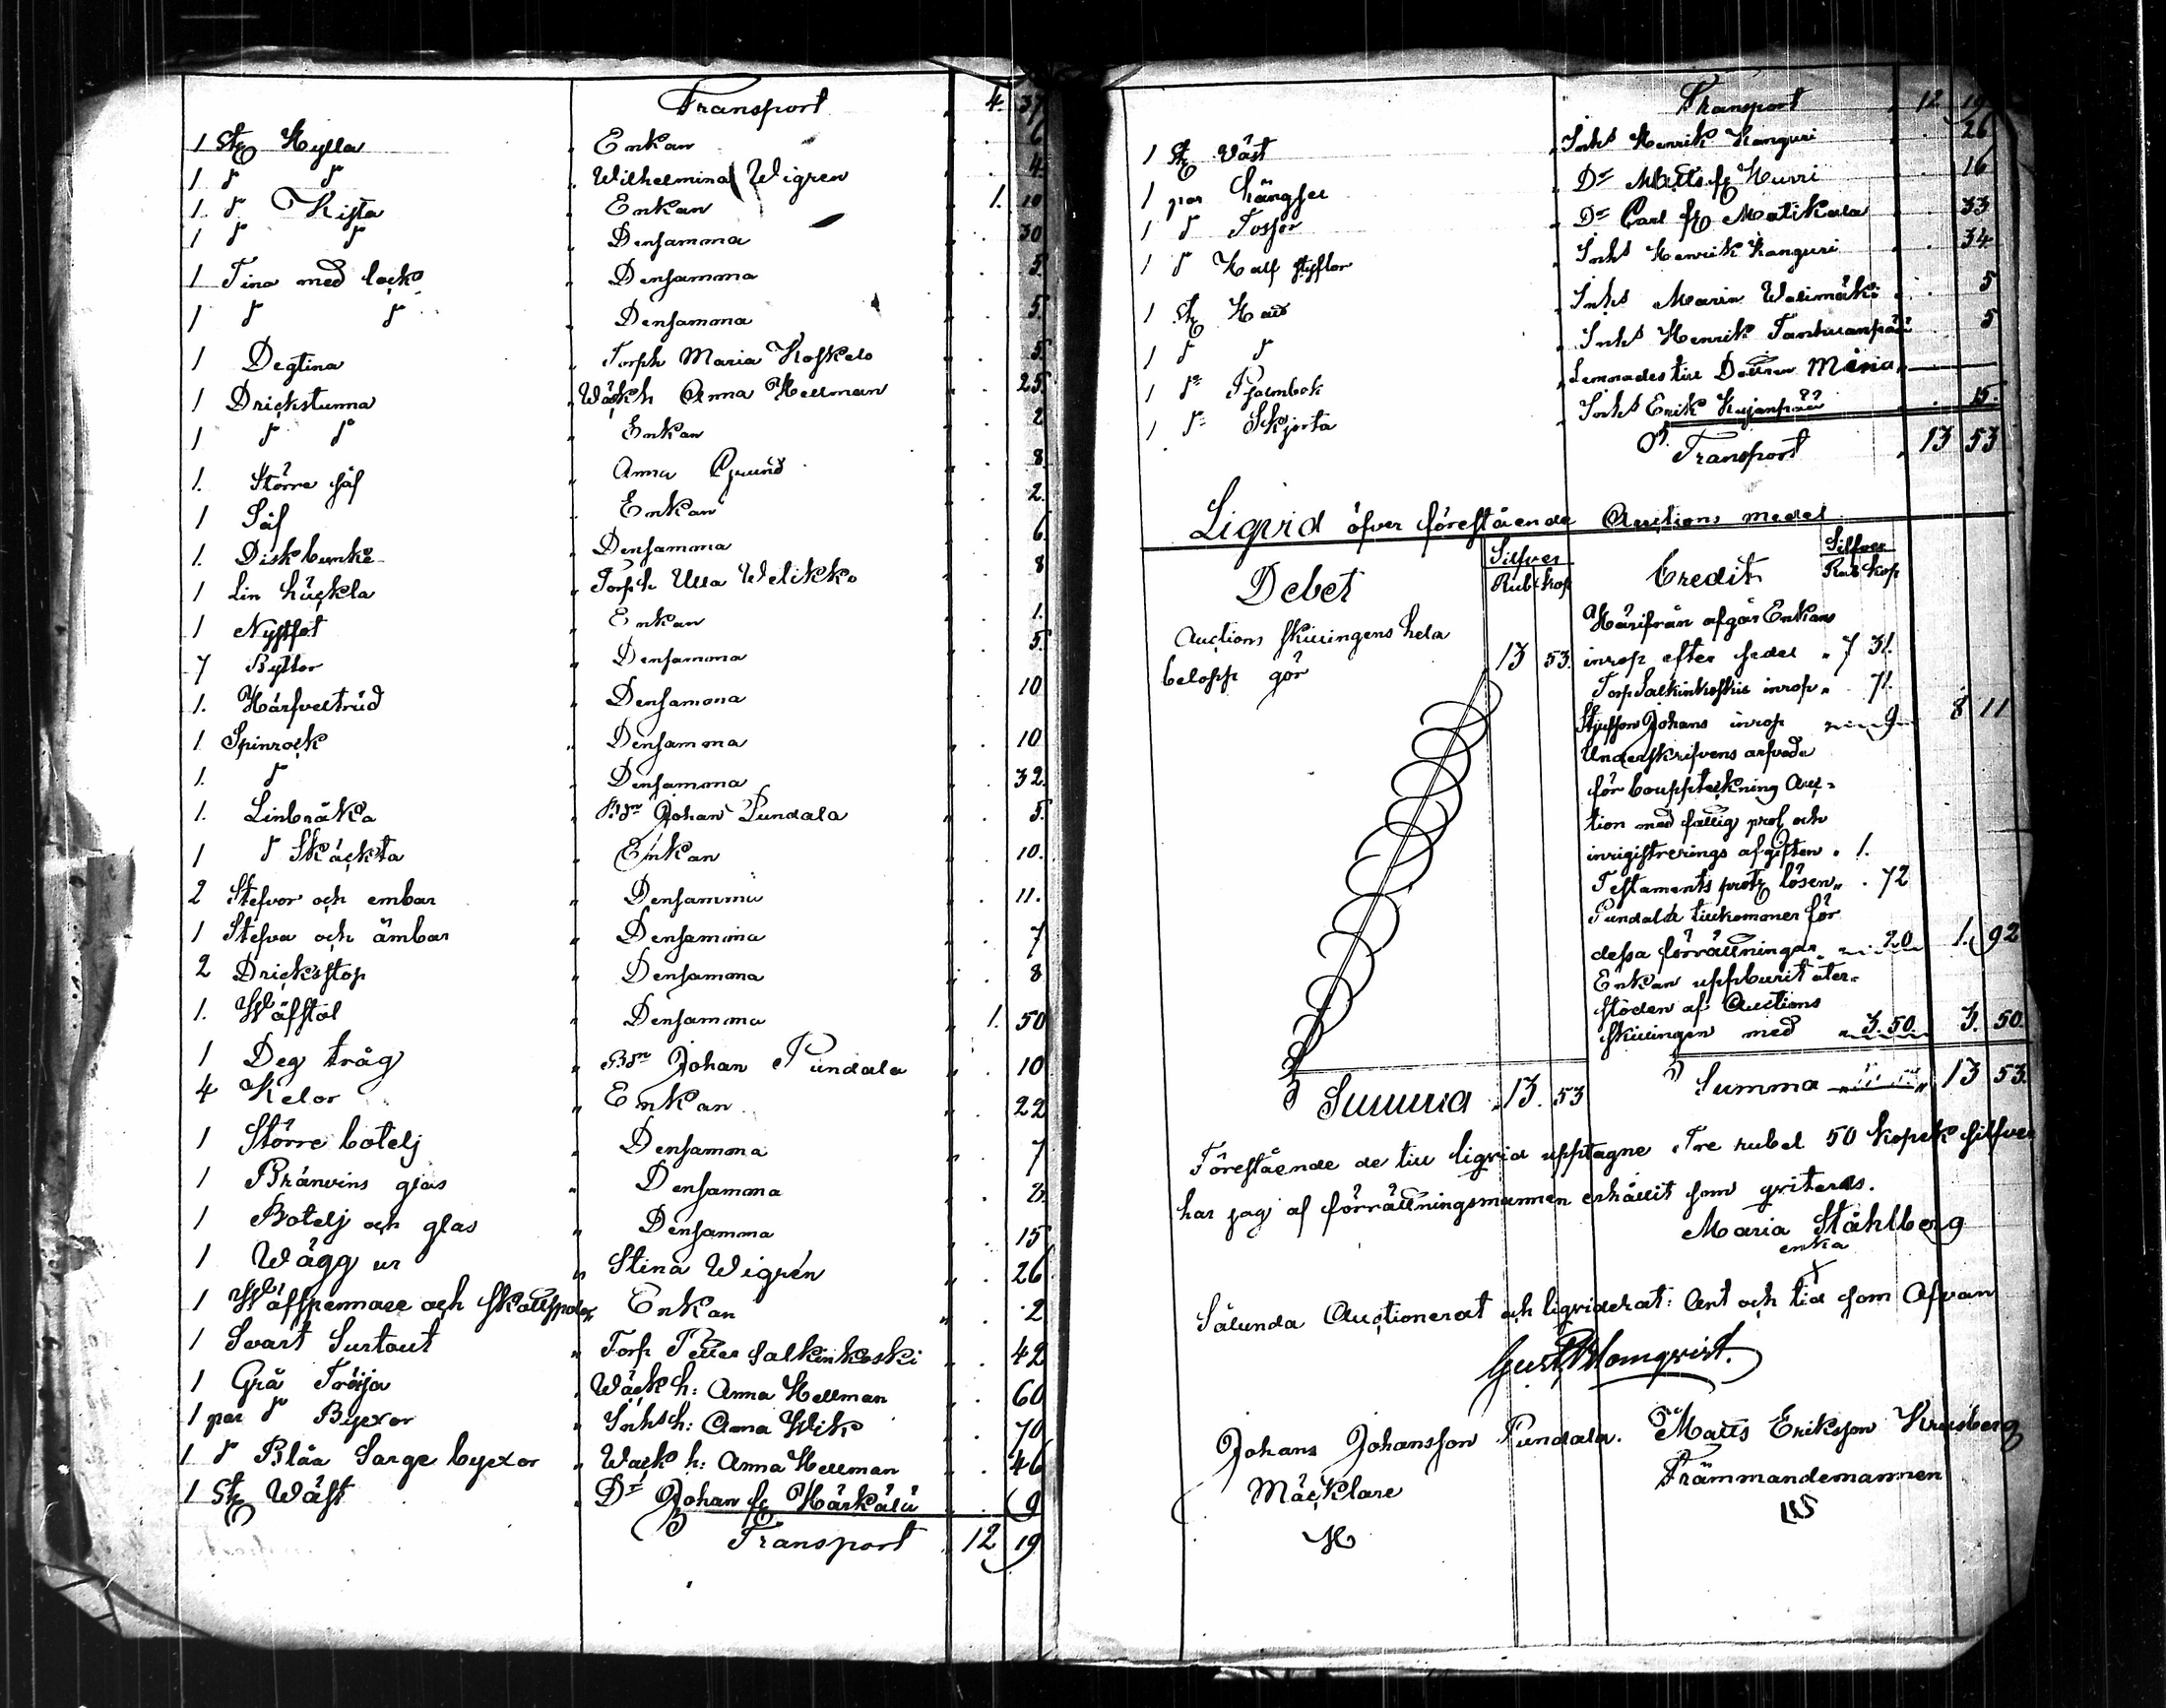 Transport 4. 37
1 St Hylla Enkan . 6
1 d d Wilhelmina Wigren . 4
1. d Kista Enkan 1. 10
1 d d Densamma . 30
1 Tina med lock Densamma . 5.
1 d d Densamma . 5.
1 Degtina Torph Maria Koskelo . 5.
1 Drickstunna Wäckh Anna Hellman . 25.
1 d d Enkan . 2
1. Större såf Anna Grund . 8
1 Såf Enkan . 2.
1. Diskbunke Densamma . 6.
1 Lin häckla Torph Ulla Welikko . 8
1 Nystfot Enkan . 1.
7 Byttor Densamma . 5.
1. Härfvelträd Densamma . 10
1 Spinrock Densamma . 10
1. d Densamma . 32.
1. Linbråka Bdn Johan Pundala . 5.
1 d Skäckta Enkan . 10.
2 Stefvor och embar Densamma . 11.
1 Stefva och ämbar Densamma . 7
2 Dricksstop Densamma . 8
1. Wäfstol Densamma 1. 50
1 Deg tråg Bdn Johan Pundala . 10
4 Kelor Enkan . 22
1 Större botelj Densamma . 7
1 Bränvins glas Densamma . 2.
1 Botelj och glas Densamma . 15
1 Wägg ur Stina Wigrén . 26
1 Wäfspennare och Enkan . 2
1 Svart Surtout Torp Petter Salkinkoski . 42
1 Grå Tröija Wäck h: Anna Hellman . 60
1 par d Byxor Inhsh: Anna Wik . 70
1 d Blåa Sarge byxor Wäck h: Anna Hellman . 46
1 St Wäst Dr Johan Härkälä . 9
Transport 12 19
Transport 12 19
1 St Väst Inhs Henrik Kanguri . 26
1 par hängslen Dr Matts Hurri . 16
1 d Tossor Dr Carl Matikala . 33
1 d Half styflor Inhs Henrik Kanguri . 34
1 St Inhs Maria Walimäki . 5
1 d d Inhs Henrik Tanhuanpää . 5
1 d Psalmbok Lemnades till Dottren Maria
1 d Skjorta Inhs Erik Kujanpää . 15.
Transport 13 53
Liqvid öfver förestående Auctions medel
Debet Silfver Rub kop
Auctions skillingens hela
belopp gör 13 53.
Summa 13. 53
Credit Silfver Rub kop
Härifrån afgår Enkans
inrop efter sedel 7 31.
Torp Salkinkoskis inrop 71.
Styfson Johans inrop 9 8 11
Underskrifvens arfvode
för bouppteckning Auc-
tion med fattig pros och
inrigistrerings afgiften 1.
Testaments prot lösen . 72
Pundala tillkommer för
dessa förrättningar 20 1. 92
Enkan uppburit åter-
stoden af Auctions
skillingen med 3. 50. 3. 50.
Summa 13 53.
Förestående de till liqvid upptagne Tre rubel 50 kopek silfver
har jag af förrättningsmannen erhållit som qviteras.
Maria Ståhlberg
enka
Sålunda Auctionerat och liqviderat: Ort och tid som Ofvan
Gust Blomqvist.
Johans Johansson Pundala.
Mäcklare
Matts Eriksson Krusberg
Främmandemannen